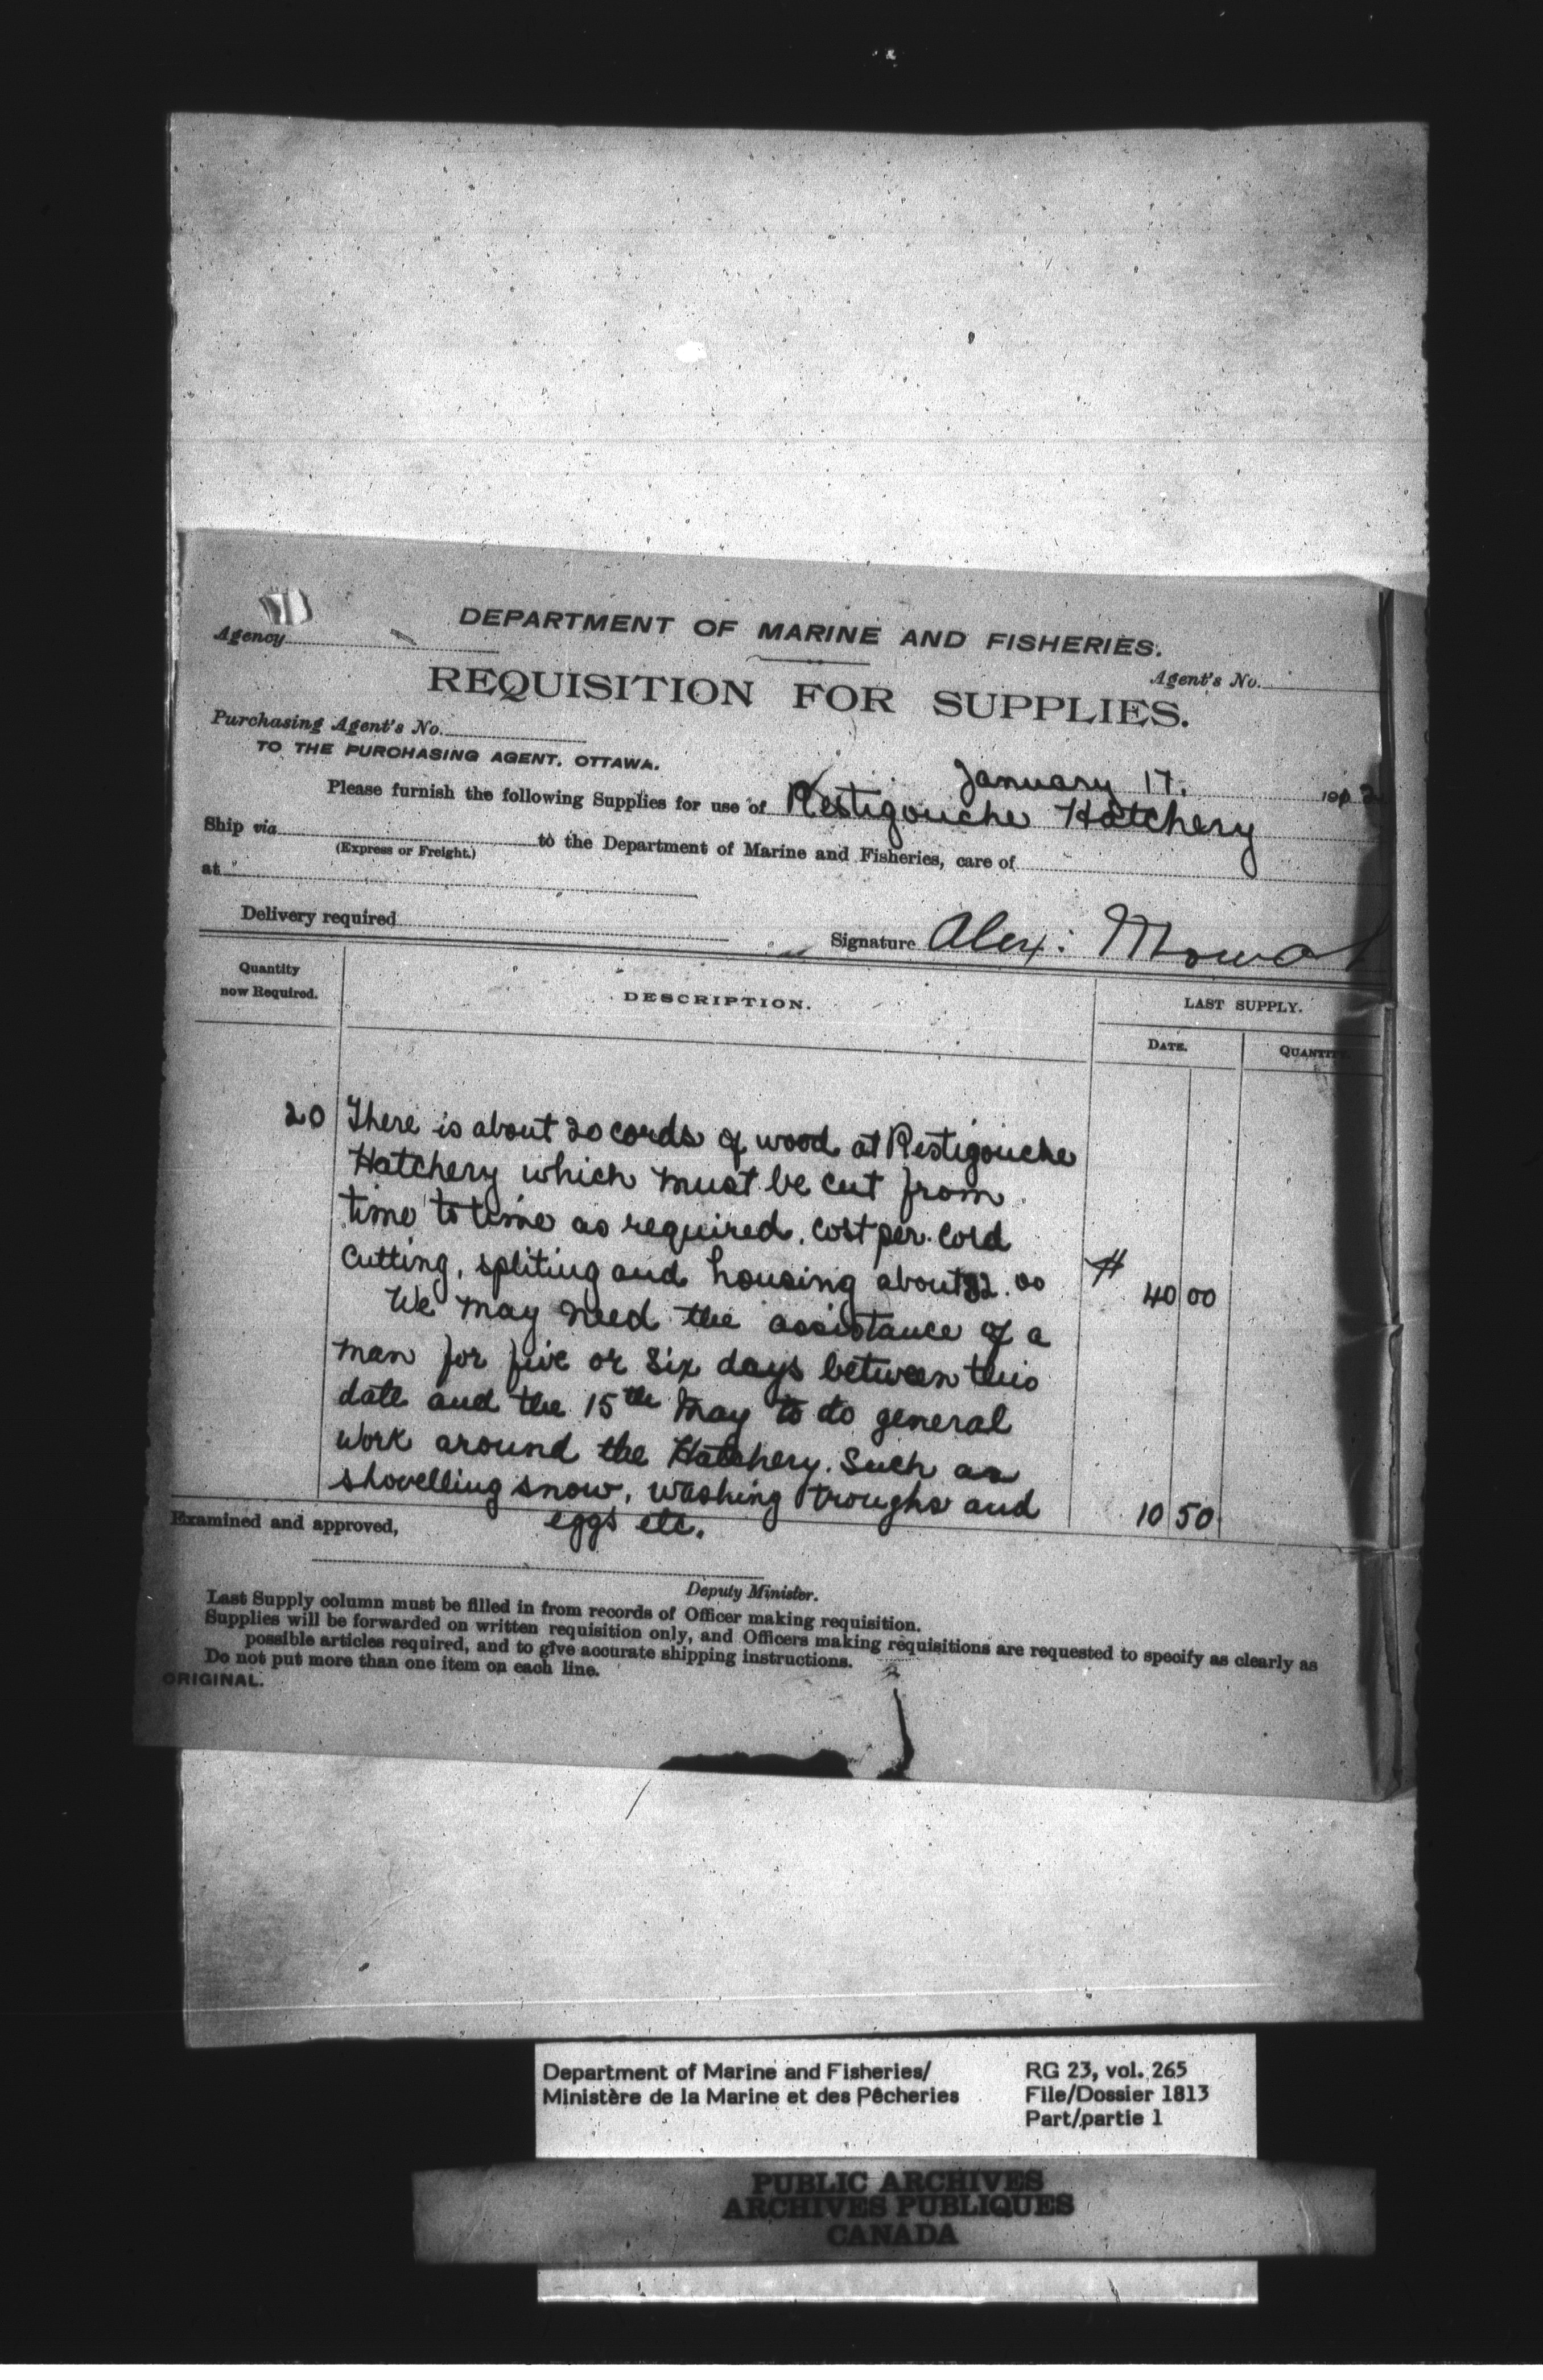 DEPARTMENT OF MARINE AND FISHERIES.
Agency
Agent's No.
REQUISITION FOR SUPPLIES.
Purchasing Agent's No.
TO THE PURCHASING AGENT, OTTAWA.
January 17. 191 2
Please furnish the following Supplies for use of Restigouche Hatchery
Ship via to the Department of Marine and Fisheries, care of
(Express or Freight.)
at
Delivery required
Signature Alex: Mowat
Quantity now Required.
DESCRIPTION.
LAST SUPPLY.
DATE.
QUANTITY
20 There is about 20 cords of wood at Restigouche
Hatchery which must be cut from
time to time as required. cost per. Cord
cutting, spliting and housing about $2.00 $ 40 00
We may need the assistance of a
man for five or six days between this
date and the 15th May to do general
work around the Hatchery. Such as
shovelling snow, washing troughs and 10 50
eggs etc.
Examined and approved,
Deputy Minister.
Last Supply column must be filled in from records of Officer making requisition.
Supplies will be forwarded on written requisition only, and Officers making requisitions are requested to specify as clearly as
possible articles required, and to give accurate shipping instructions.
Do not put more than one item on each line.
ORIGINAL.
Department of Marine and Fisheries/
Ministère de la Marine et des Pêcheries
RG 23, vol. 265
File/Dossier 1813
Part/partie 1
PUBLIC ARCHIVES
ARCHIVES PUBLIQUES
CANADA